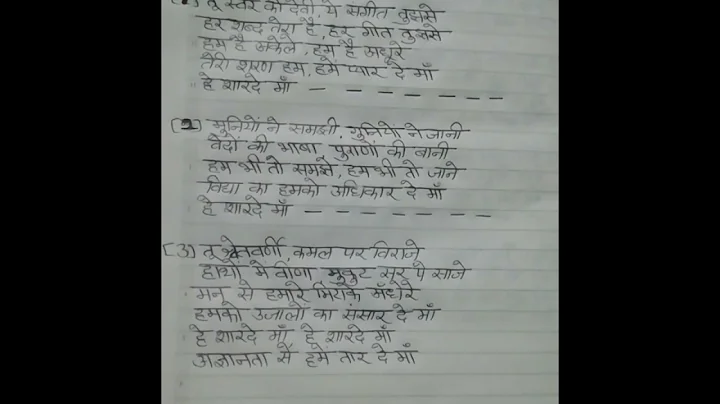 (1) तू स्वर की देवी, ये संगीत तुझसे
हर शब्द तेरा है, हर गीत तुझसे
हम है अकेले, हम है अधूरे
तेरी शरण हम, हमें प्यार दे माँ
हे शारदे माँ — — — — — — —
(2) मुनियों ने समझी, गुनियों ने जानी
वेदों की भाषा पुराणों की बानी
हम भी तो समझे, हम भी तो जाने
विद्या का हमको अधिकार दे माँ
हे शारदे माँ — — — — — — —
(3) तू श्वेतवर्णी, कमल पर विराजे
हाथों मे वीणा मुकुट सर पे साजे
मन से हमारे मिटाके अँधेरे
हमको उजालों का संसार दे माँ
हे शारदे माँ, हे शारदे माँ
अज्ञानता से हमें तार दे माँ